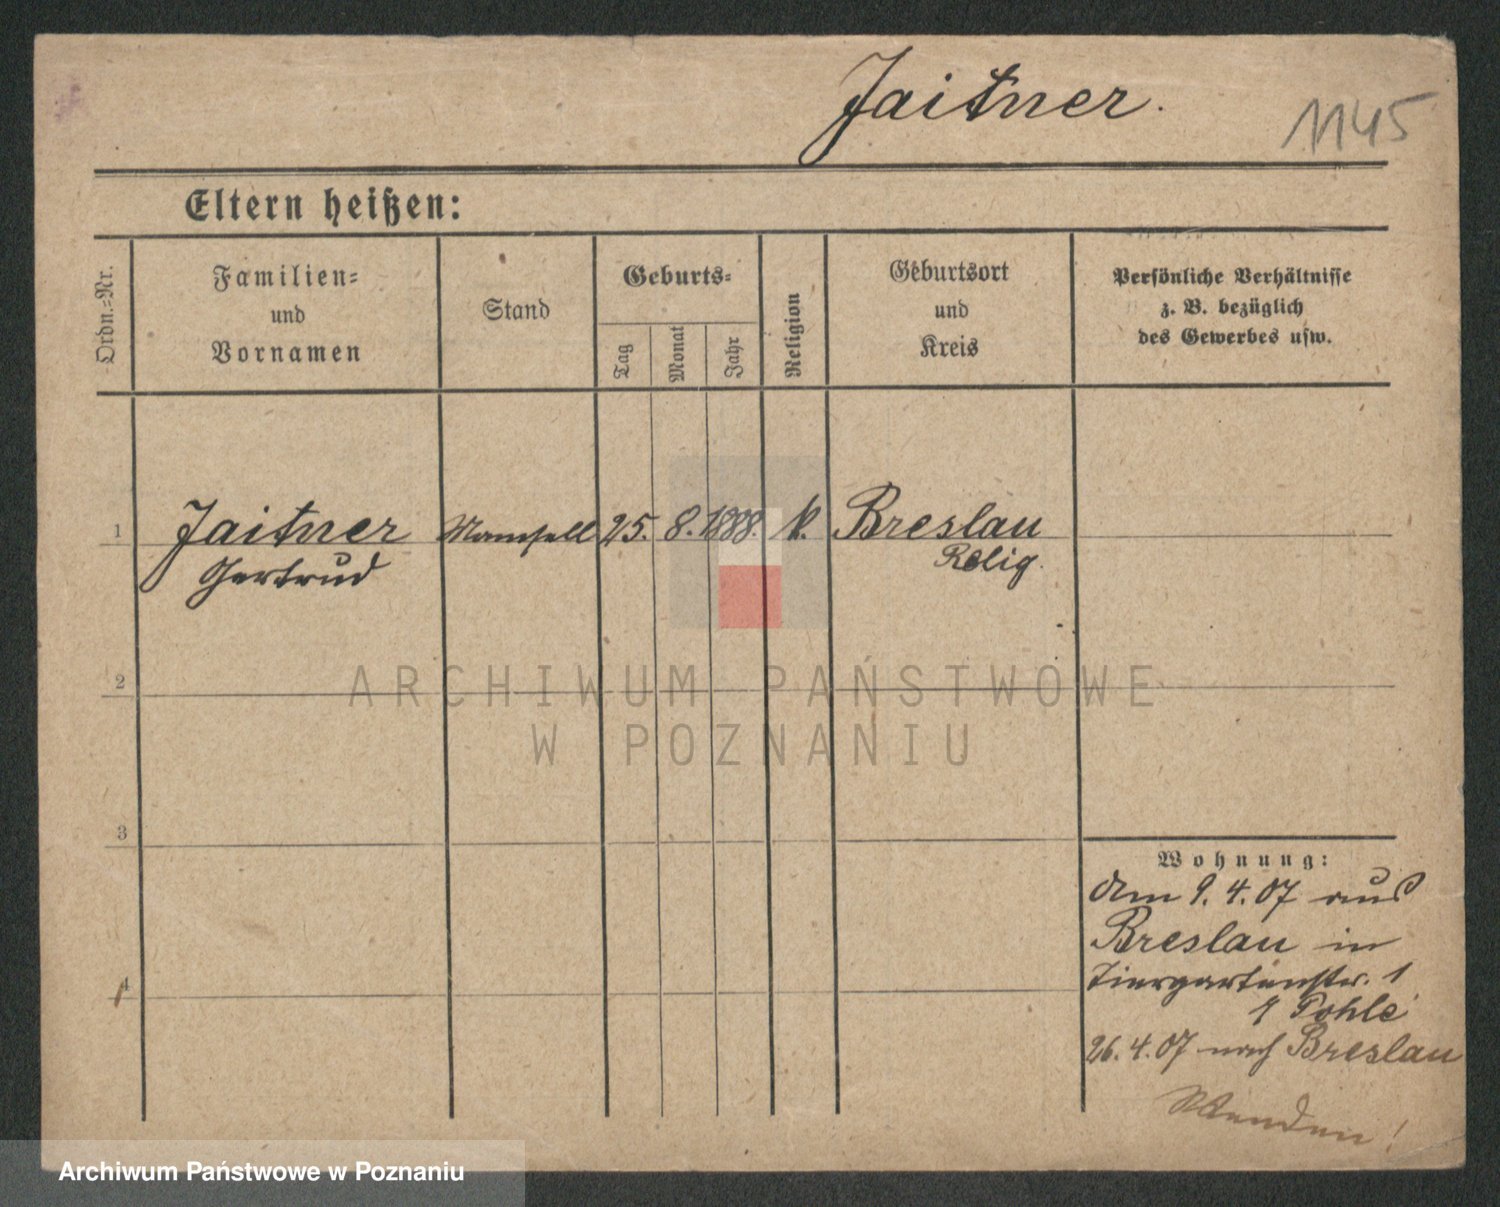 Jaitner.
1145
Eltern heißen:
Ordn.=Nr.
Familien=
und
Vornamen
Stand
Geburts=
Tag
Monat
Jahr
Religion
Geburtsort
und
Kreis
Persönliche Verhältnisse
z. B. bezüglich
des Gewerbes usw.
1 Jaitner Mamsell 25. 8. 1888. k. Breslau
Gertrud Relig.
2
ARCHIWUM PAŃSTWOWE
W POZNANIU
3
Wohnung:
Am 9. 4. 07 aus
Breslau in
Tiergartenstr. 1
Pohle
4
26. 4. 07 nach Breslau
Wenden!
Archiwum Państwowe w Poznaniu